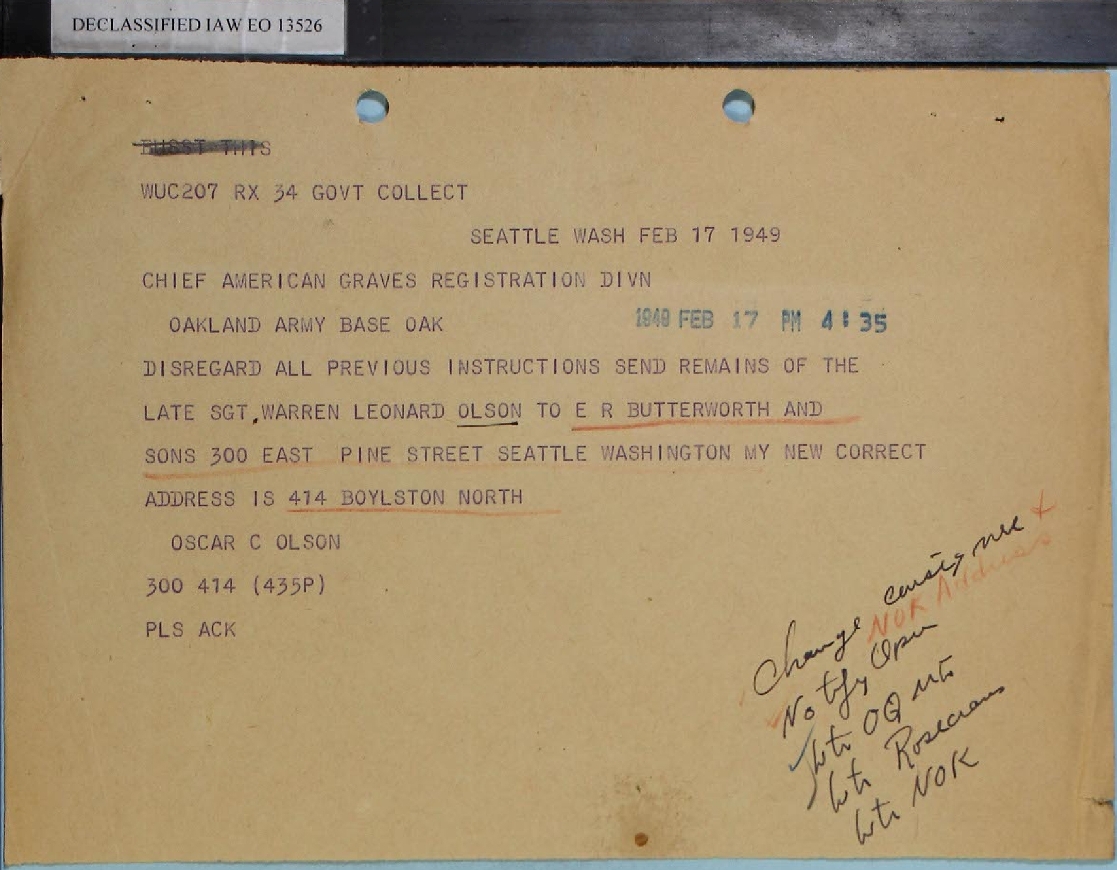 DECLASSIFIED IAW EO 13526
BUSST THIS
WUC207 RX 34 GOVT COLLECT
SEATTLE WASH FEB 17 1949
CHIEF AMERICAN GRAVES REGISTRATION DIVN
OAKLAND ARMY BASE OAK
1949 FEB 17 PM 4:35
DISREGARD ALL PREVIOUS INSTRUCTIONS SEND REMAINS OF THE
LATE SGT,WARREN LEONARD OLSON TO E R BUTTERWORTH AND
SONS 300 EAST PINE STREET SEATTLE WASHINGTON MY NEW CORRECT
ADDRESS IS 414 BOYLSTON NORTH
OSCAR C OLSON
300 414 (435P)
PLS ACK
Change consignee +
NOK Address
Notify Opn
Ltr OQMG
Ltr Rosecrans
Ltr NOK